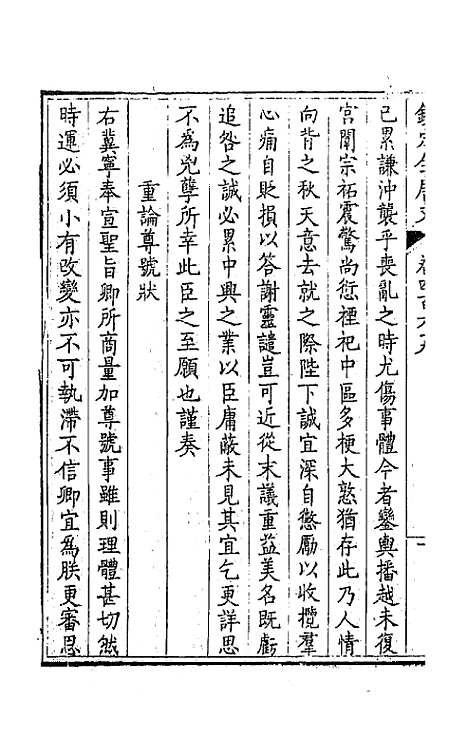 欽定全唐文
卷四百六十九
一
已累謙沖襲乎喪亂之時尤傷事體今者鑾輿播越未復
宮闈宗祏震驚尚愆禋祀中區多梗大憝猶存此乃人情
向背之秋天意去就之際陛下誠宜深自懲勵以收攬羣
心痛自貶損以答謝靈譴豈可近從末議重益美名既虧
追咎之誠必累中興之業以臣庸蔽未見其宜乞更詳思
不為兇孽所幸此臣之至願也謹奏
重論尊號狀
右冀寧奉宣聖旨卿所商量加尊號事雖則理體甚切然
時運必須小有改變亦不可執滯不信卿宜為朕更審思